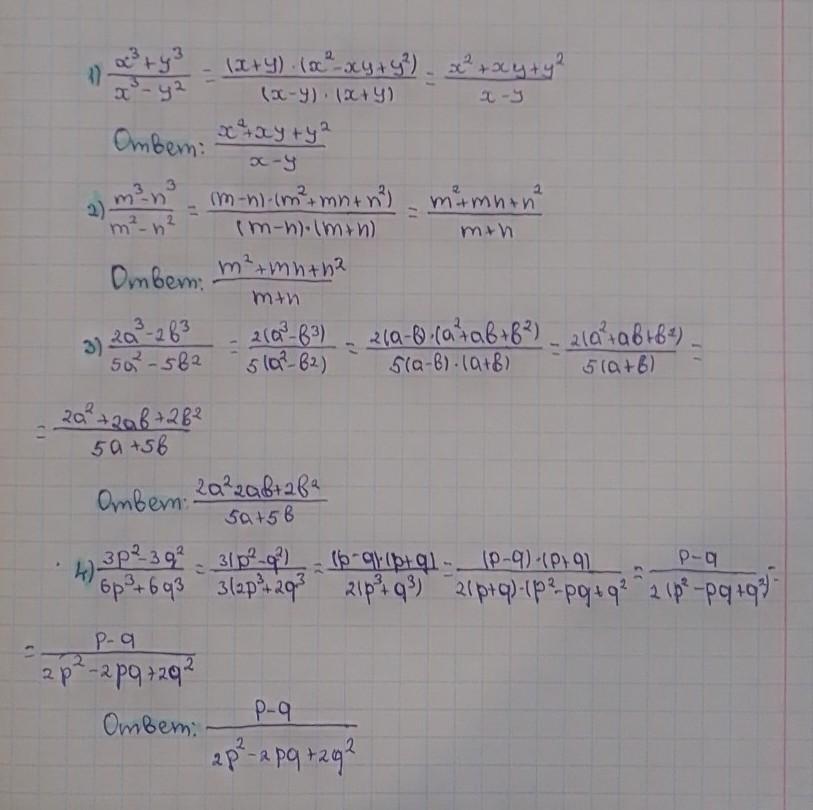 1) (x³+y³)/(x³-y²) = ((x+y)·(x²-xy+y²))/((x-y)·(x+y)) = (x²+xy+y²)/(x-y)
Ответ: (x²+xy+y²)/(x-y)
2) (m³-n³)/(m²-n²) = ((m-n)·(m²+mn+n²))/((m-n)·(m+n)) = (m²+mn+n²)/(m+n)
Ответ: (m²+mn+n²)/(m+n)
3) (2a³-2b³)/(5a²-5b2) = (2(a³-b³))/(5(a²-b2)) = (2(a-b)·(a²+ab+b²))/(5(a-b)·(a+b)) = (2(a²+ab+b²))/(5(a+b)) =
= (2a²+2ab+2b²)/(5a+5b)
Ответ: (2a²2ab+2b²)/(5a+5b)
4) (3p²-3q²)/(6p³+6q³) = (3(p²-q²))/(3(2p³+2q³) = ((p-q)·(p+q))/(2(p³+q³)) = ((p-q)·(p+q))/(2(p+q)·(p²-pq+q²) = (p-q)/(2(p²-pq+q²)) =
= (p-q)/(2p²-2pq+2q²)
Ответ: (p-q)/(2p²-2pq+2q²)